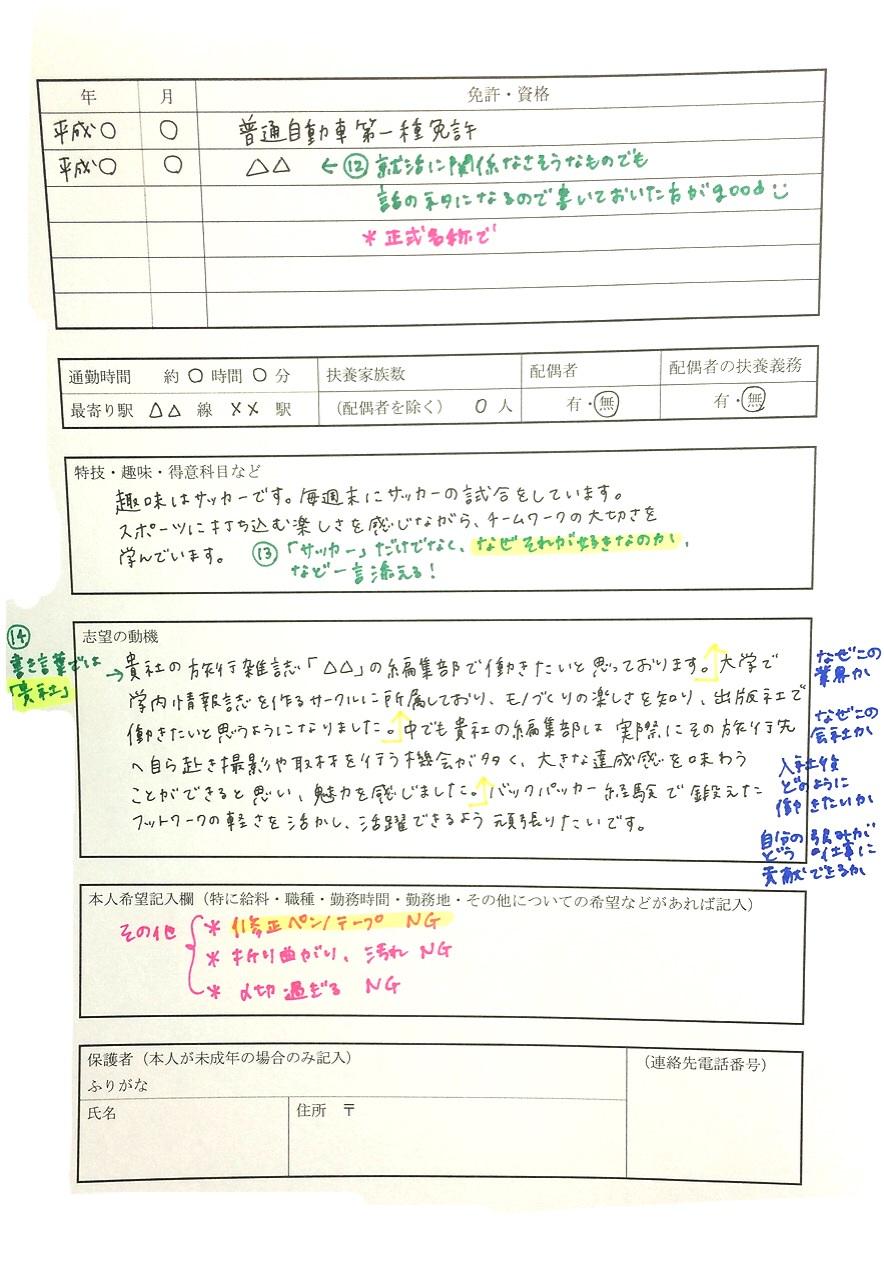 年 月 免許・資格
平成○ ○ 普通自動車第一種免許
平成○ ○ △△ ←⑫ 就活に関係なさそうなものでも
話のネタになるので書いておいた方がgood
*正式名称で
通勤時間 約 ○ 時間 ○ 分
最寄り駅 △△ 線 ×× 駅
扶養家族数
(配偶者を除く) 0 人
配偶者
有・無
配偶者の扶養義務
有・無
特技・趣味・得意科目など
趣味はサッカーです。毎週末にサッカーの試合をしています。
スポーツに打ち込む楽しさを感じながら、チームワークの大切さを
学んでいます。
⑬「サッカー」だけでなく、なぜそれが好きなのか、
など一言添える!
⑭
書き言葉では
「貴社」
志望の動機
→貴社の旅行雑誌「△△」の編集部で働きたいと思っております。大学で
学内情報誌を作るサークルに所属しており、モノづくりの楽しさを知り、出版社で
働きたいと思うようになりました。中でも貴社の編集部は実際にその旅行先
へ自ら赴き撮影や取材を行う機会が多く、大きな達成感を味わう
ことができると思い、魅力を感じました。バックパッカー経験で鍛えた
フットワークの軽さを活かし、活躍できるよう頑張りたいです。
なぜこの
業界か
なぜこの
会社か
入社後
どのように
働きたいか
自分の強みが
どう仕事に
貢献できるか
本人希望記入欄(特に給料・職種・勤務時間・勤務地・その他についての希望などがあれば記入)
その他 * 修正ペン/テープ NG
* 折り曲がり、汚れ NG
* 〆切過ぎる NG
保護者(本人が未成年の場合のみ記入)
ふりがな
氏名
住所 〒
(連絡先電話番号)